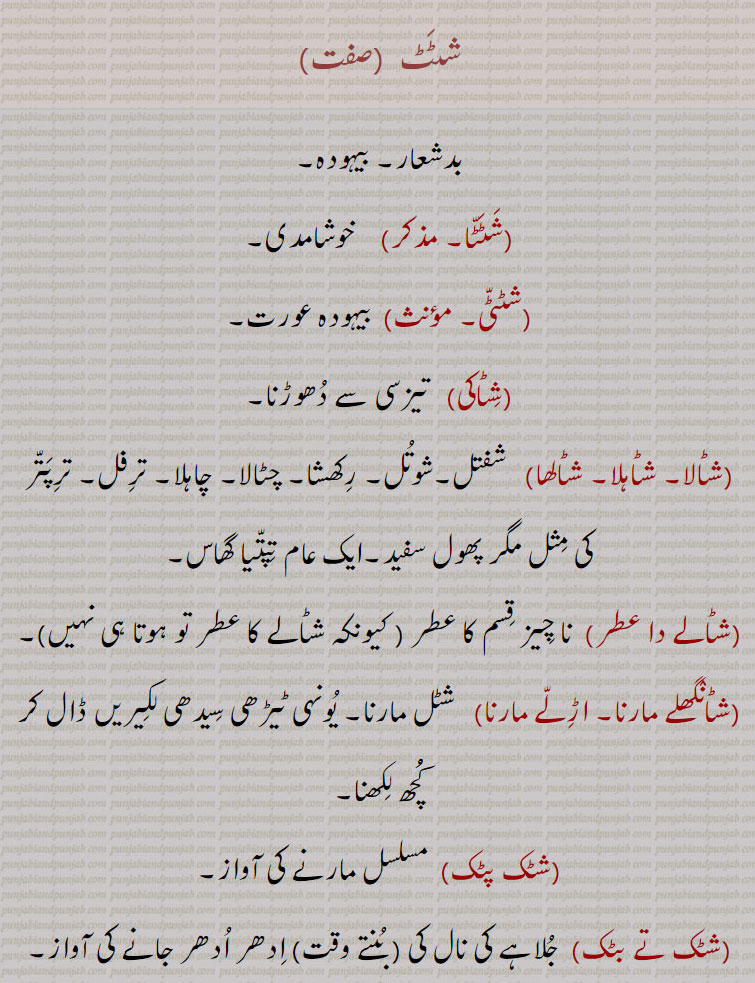 شٹَٹ (صفت)
بدشعار۔ بیہودہ۔
(شَٹَٹّا۔ مذکر) خوشامدی۔
(شٹٹّی۔ مؤنث) بیہودہ عورت۔
(شِٹاکی) تیزسی سے دُھوڑنا۔
(شٹالا۔ شٹاہلا۔ شٹالھا) شفتل۔شوتُل۔ رِکھشا۔ چٹالا۔ چاہلا۔ ترِفل۔ ترِپَتّر
کی مِثل مگر پھول سفید۔ایک عام تِپتّیا گھاس۔
(شٹالے دا عطر) ناچِیز قِسم کا عطر (کیونکہ شٹالے کا عطر تو ہوتا ہی نہیں)۔
(شٹانگھلے مارنا۔ اڑِلّے مارنا) شٹل مارنا۔ یُونہی ٹیڑھی سِیدھی لکِیریں ڈال کر
کُچھ لِکھنا۔
(شٹک پٹک) مسلسل مارنے کی آواز۔
(شٹک تے بٹک) جُلاہے کی نال کی (بُنتے وقت) اِدھر اُدھر جانے کی آواز۔